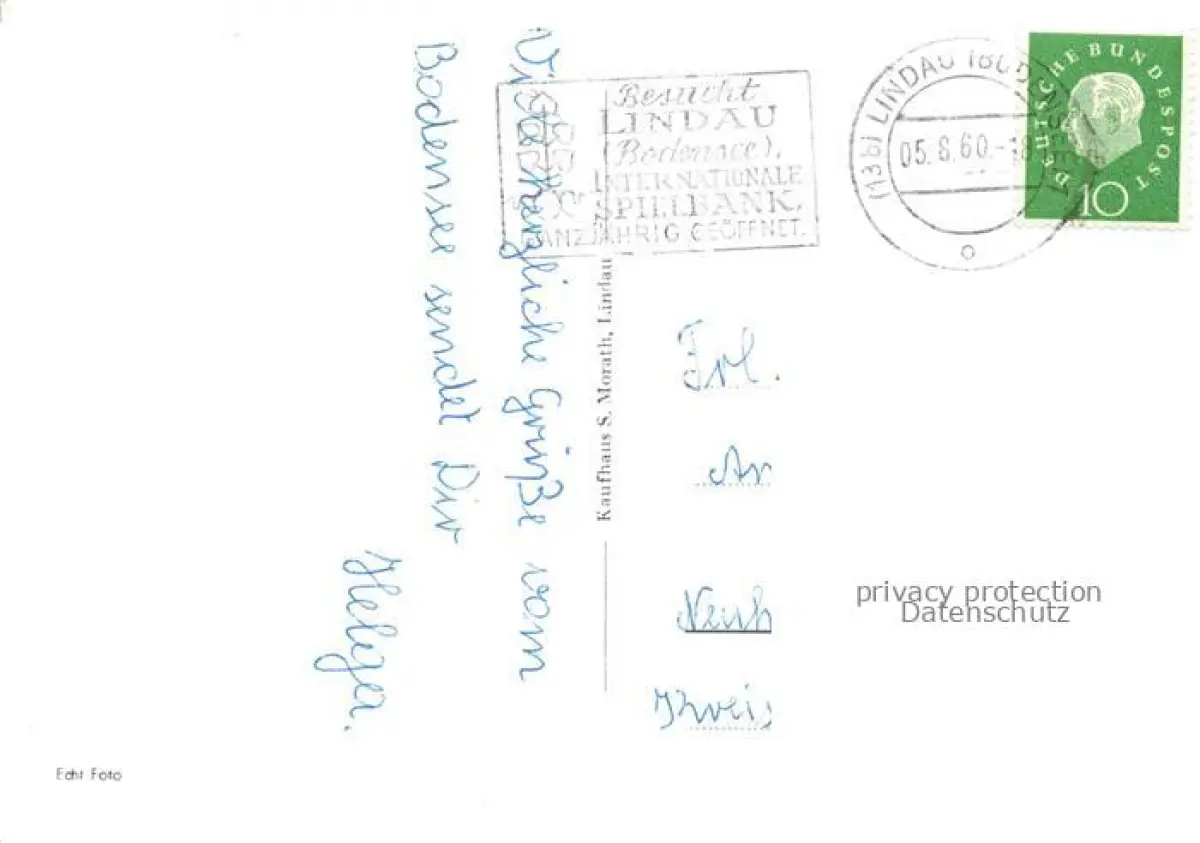 Viele herzliche Grüße vom
Bodensee sendet Dir
Helga.
Besucht
LINDAU
(Bodensee),
INTERNATIONALE
SPIELBANK,
GANZJÄHRIG GEÖFFNET.
(13b) LINDAU (BODENSEE)
05.8.60.-18
DEUTSCHE BUNDESPOST
10
Kaufhaus S. Morath, Lindau
Frl.
Neuh
Kreis
privacy protection
Datenschutz
Echt Foto